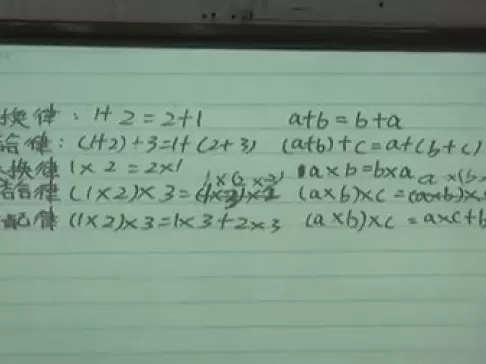 换律：1+2=2+1 a+b=b+a
合律：(1+2)+3=1+(2+3) (a+b)+c=a+(b+c)
换律 1×2=2×1 a×b=b×a
结合律 (1×2)×3=1×(2×3) (a×b)×c=a×(b×
配律 (1×2)×3=1×3+2×3 (a×b)×c=a×c+b